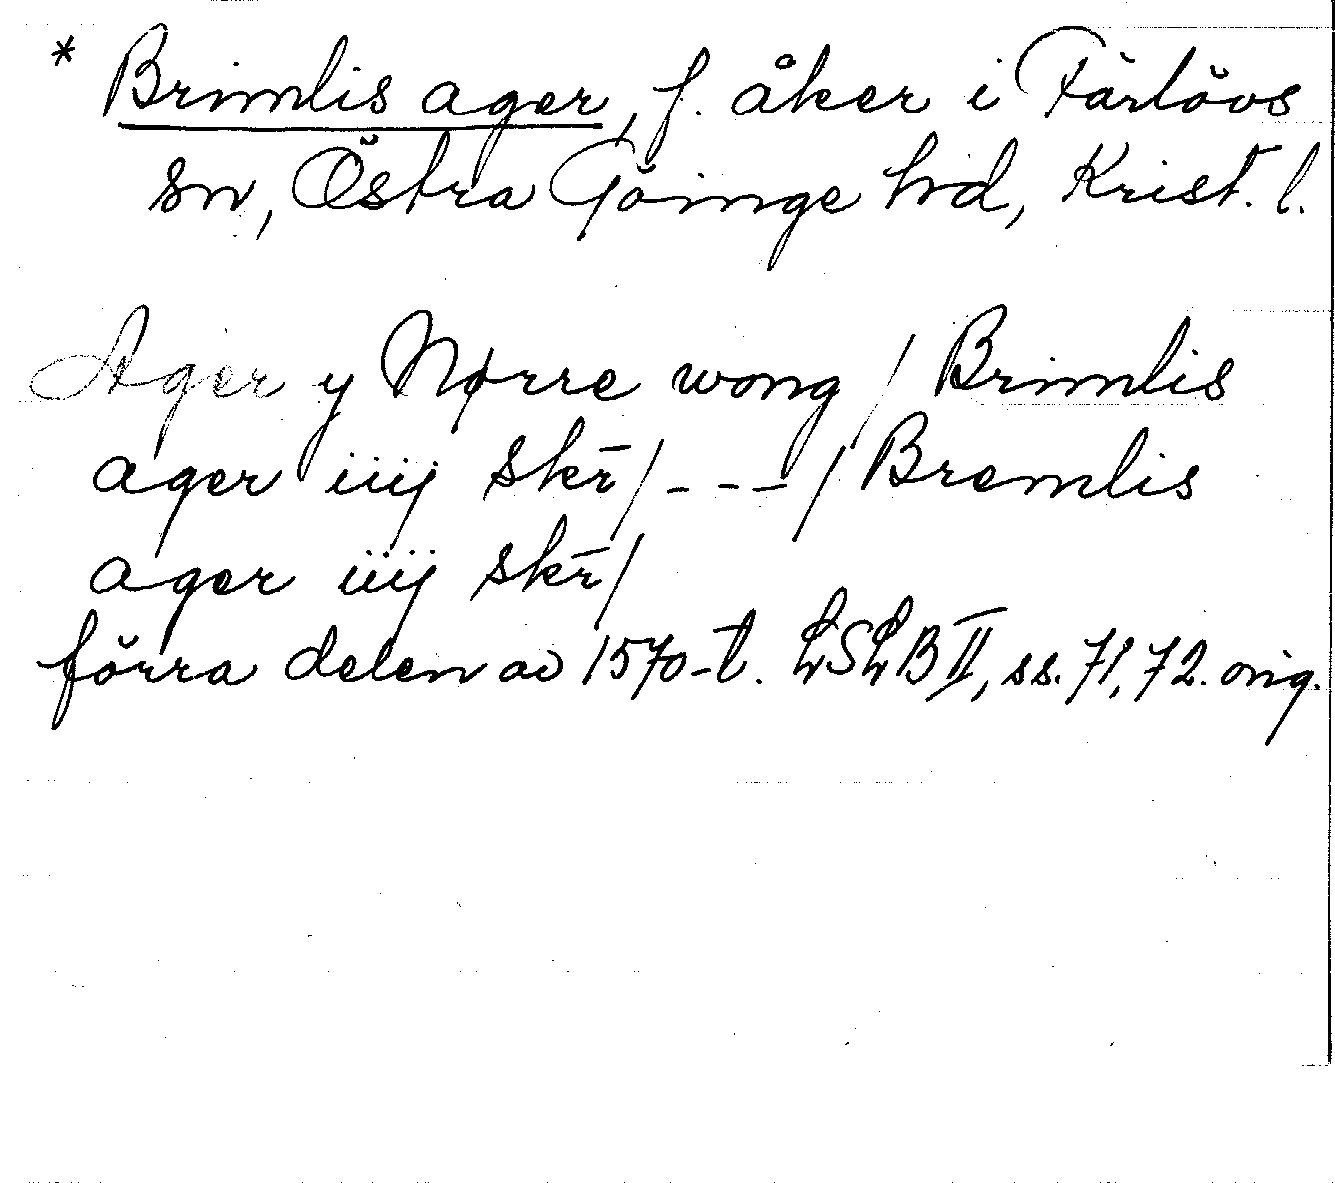 * Brimlis ager, f. åker i Färlövs
sn, Östra Göinge hd, Krist. l.
Ager y Nørre wong / Brimlis
ager iiij skr̄ / - - - / Bremlis
ager iiij skr̄ /
förra delen av 1570-t. LSLB II, ss. 71, 72. orig.